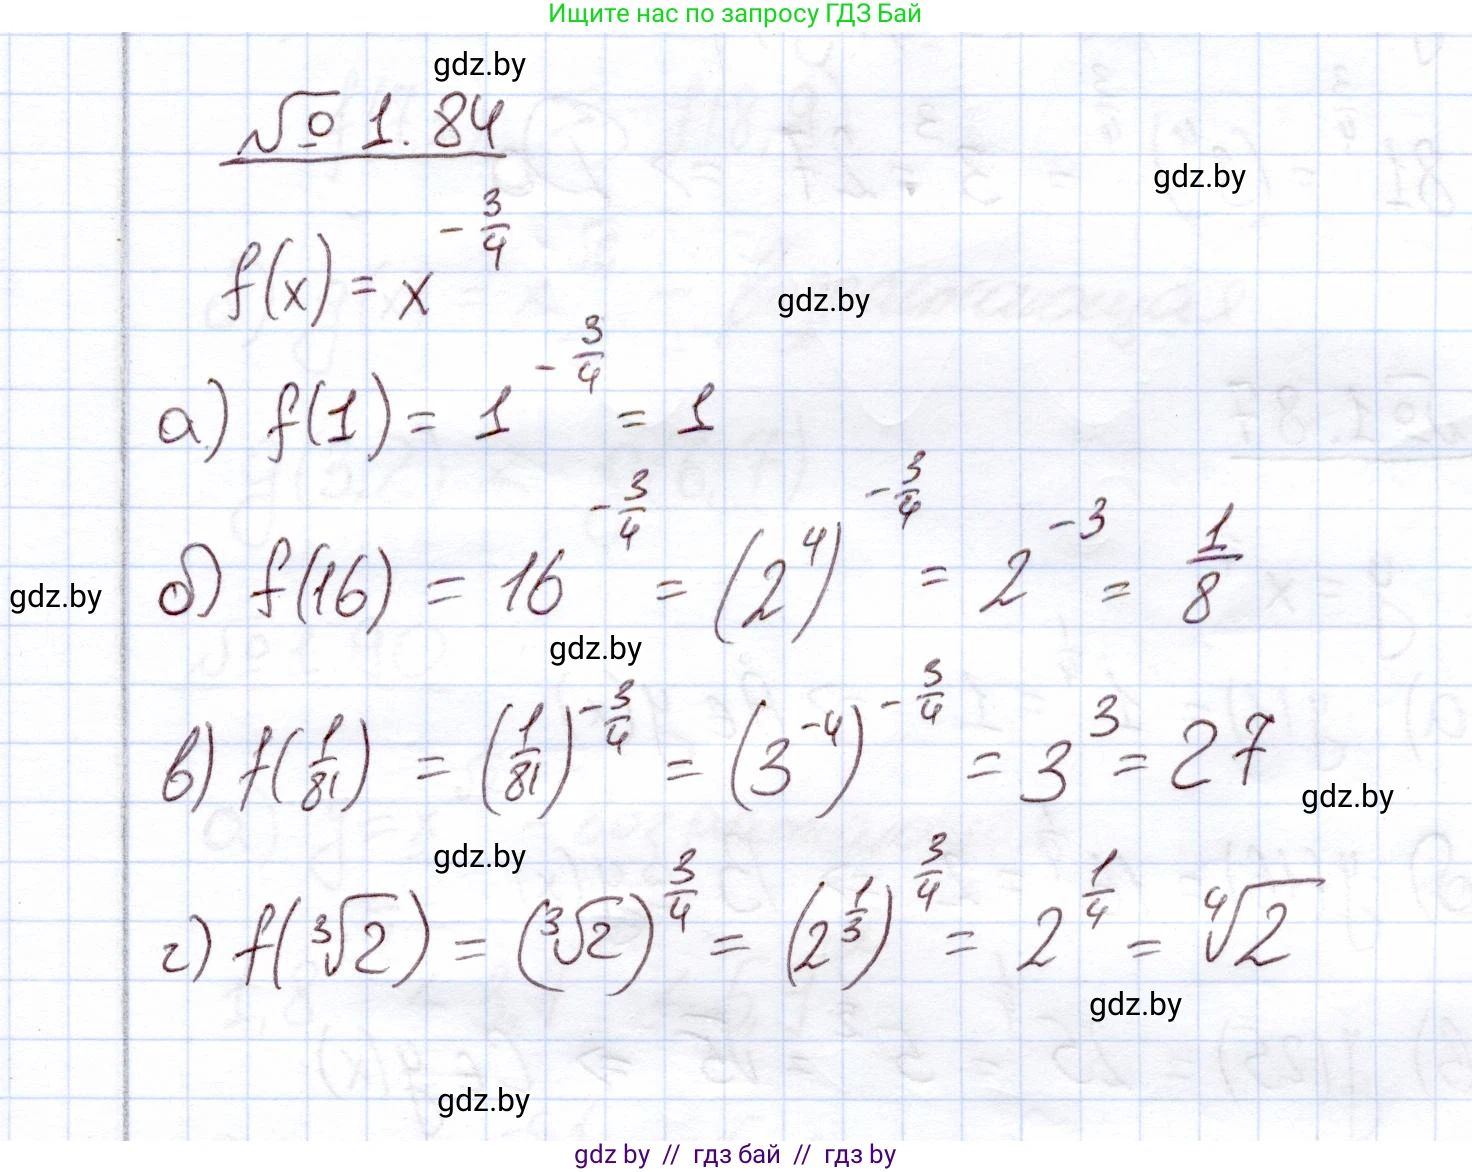 Ищите нас по запросу ГДЗ Бай
gdz.by
№ 1.84
gdz.by
f(x) = x^{-3/4}
gdz.by
а) f(1) = 1^{-3/4} = 1
б) f(16) = 16^{-3/4} = (2^4)^{-3/4} = 2^{-3} = 1/8
gdz.by
gdz.by
в) f(1/81) = (1/81)^{-3/4} = (3^{-4})^{-3/4} = 3^3 = 27
gdz.by
gdz.by
г) f(∛2) = (∛2)^{3/4} = (2^{1/3})^{3/4} = 2^{1/4} = ∜2
gdz.by
gdz.by
gdz.by // гдз бай // гдз by